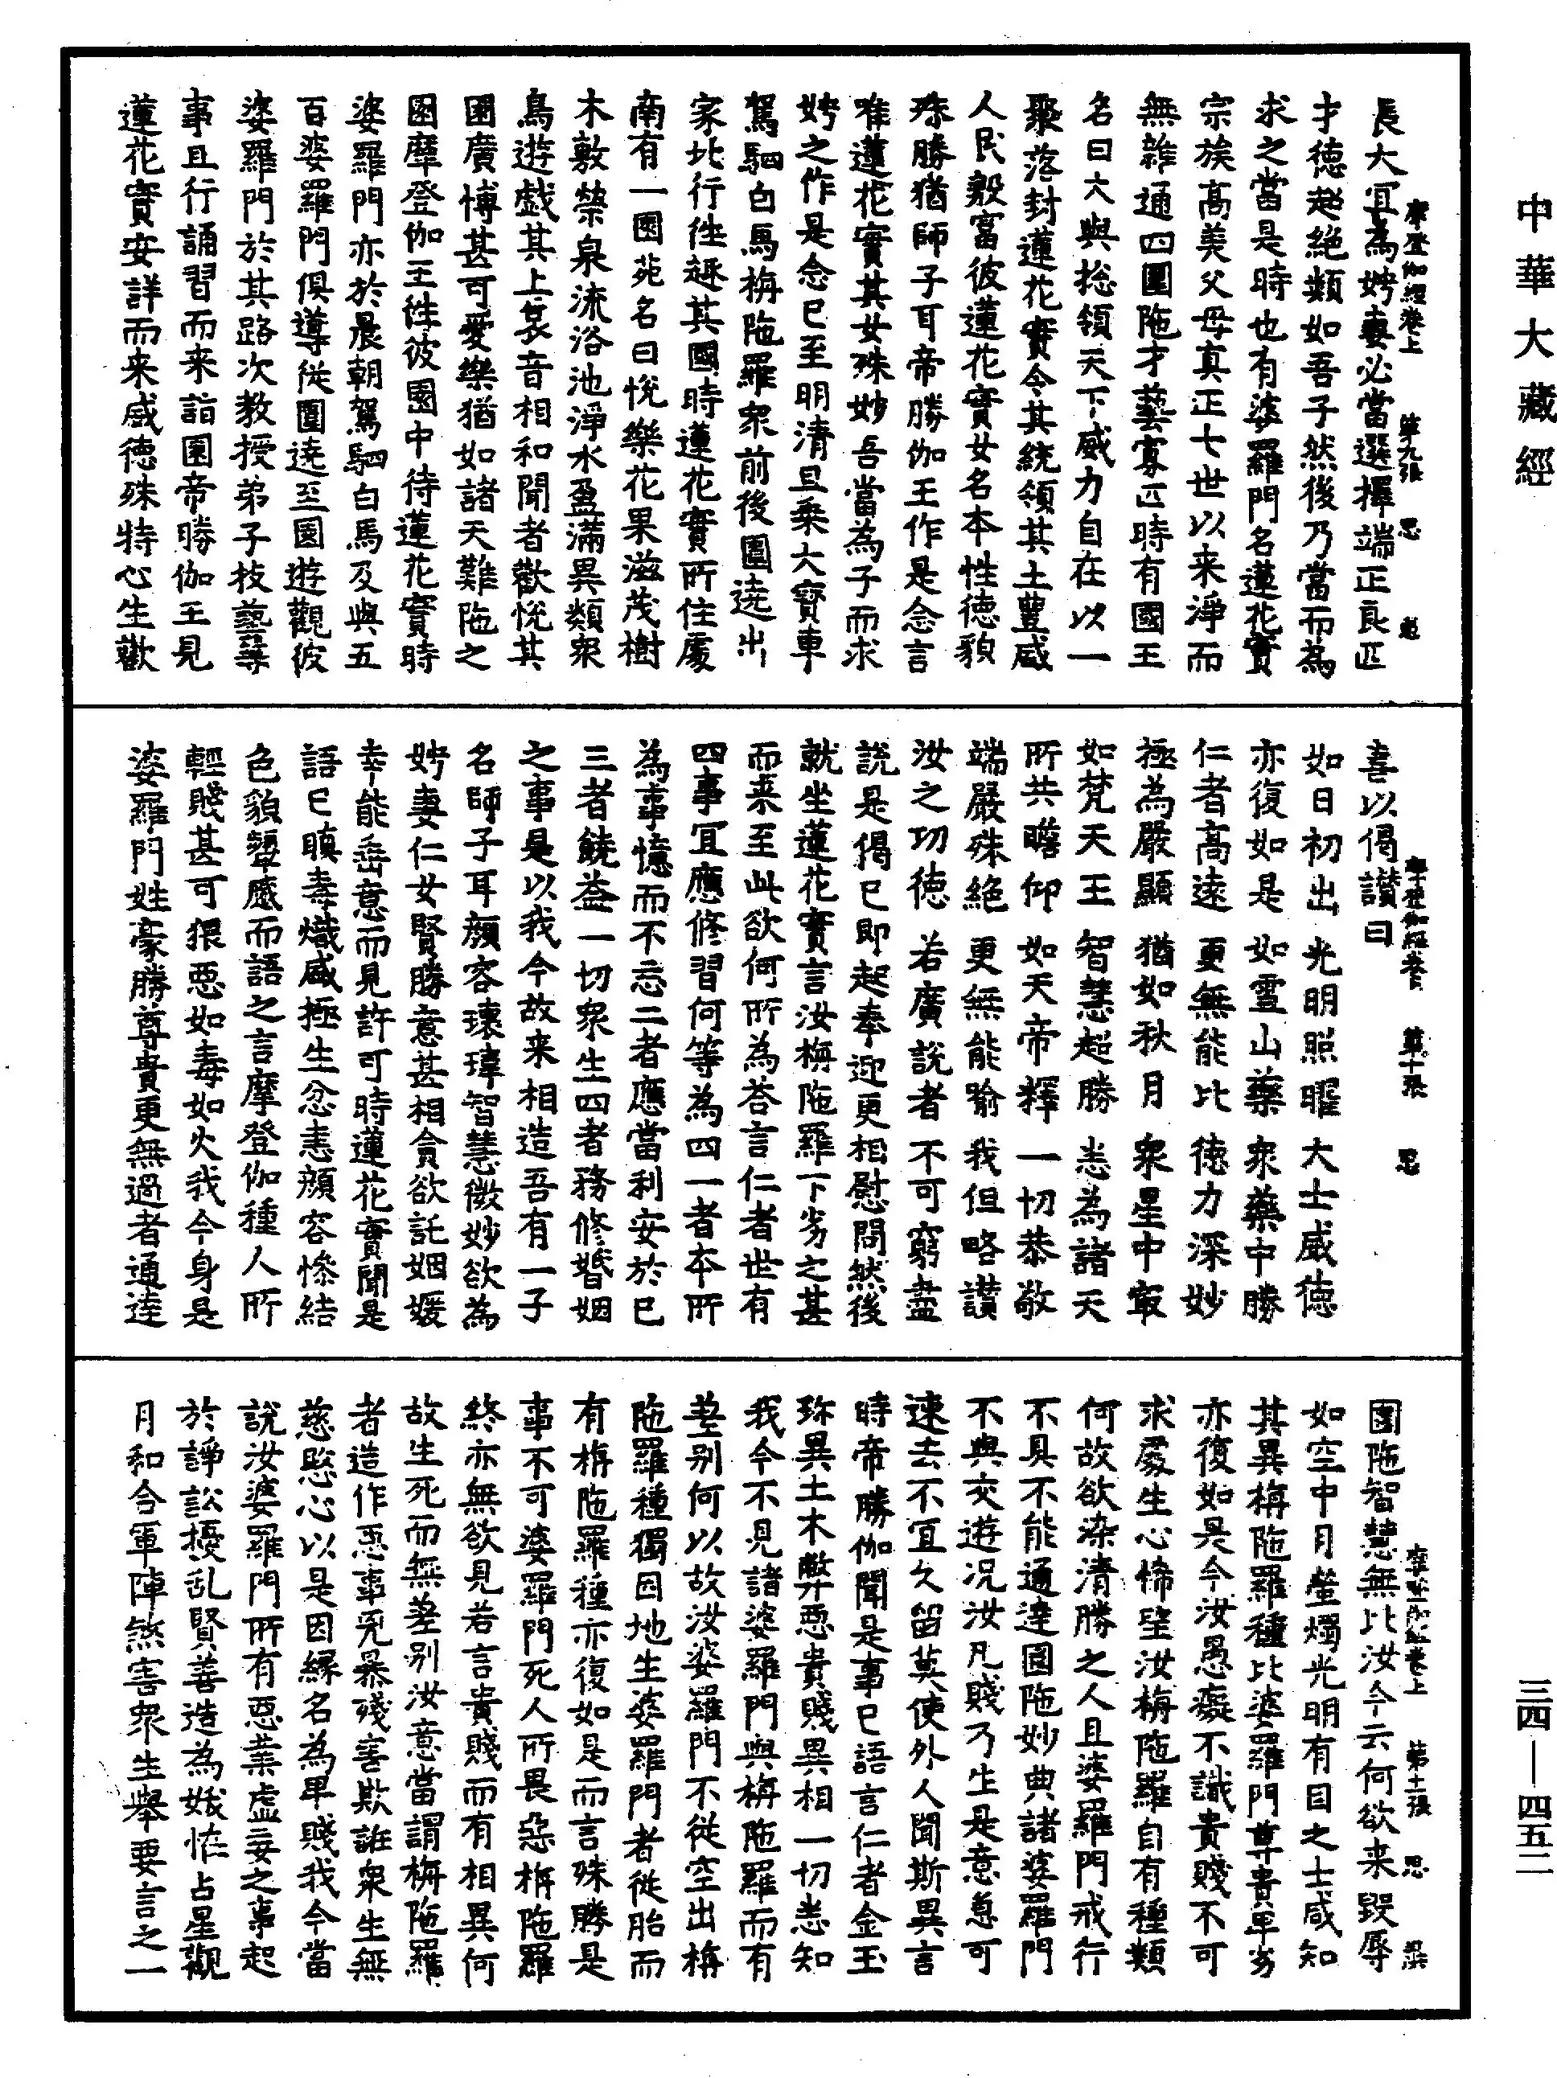 中華大藏經
長大宜為娉妻必當選擇端正良匹
摩登伽經卷上 第九張 思
才德超絕類如吾子然後乃當而為
求之當是時也有婆羅門名蓮花實
宗族高美父母真正七世以来淨而
無雜通四圍陁才藝寡匹時有國王
名曰大與捴領天下威力自在以一
聚落封蓮花實令其統領其土豊盛
人民殷富彼蓮花實女名本性德貌
殊勝猶師子耳帝勝伽王作是念言
唯蓮花實其女殊妙吾當為子而求
娉之作是念已至明清旦乗大寶車
駕駟白馬栴陁羅衆前後圍遶出
家北行徃趣其國時蓮花實所住處
南有一園苑名曰悅樂花果滋茂樹
木敷榮泉流浴池淨水盈滿異類衆
鳥遊戲其上哀音相和聞者歡悅其
園廣博甚可愛樂猶如諸天難陁之
園摩登伽王徃彼園中待蓮花實時
婆羅門亦於晨朝駕駟白馬及與五
百婆羅門俱導從圍遶至園遊觀彼
婆羅門於其路次教授弟子技藝等
事且行誦習而来詣園帝勝伽王見
蓮花實安詳而来威德殊特心生歡
喜以偈讃曰
摩登伽經卷上 第十張 思
如日初出 光明照曜 大士威德
亦復如是 如雪山藥 衆藥中勝
仁者高逺 更無能比 德力深妙
極為嚴顯 猶如秋月 衆星中㝡
如梵天王 智慧超勝 恙為諸天
所共瞻仰 如天帝釋 一切恭敬
端嚴殊絕 更無能喻 我但略讃
汝之功德 若廣說者 不可窮盡
說是偈已即起奉迎更相慰問然後
就坐蓮花實言汝栴陁羅下劣之甚
而来至此欲何所為荅言仁者世有
四事宜應修習何等為四一者本所
為事憶而不忘二者應當利安於已
三者饒益一切衆生四者務修婚姻
之事是以我今故来相造吾有一子
名師子耳顏容瓌瑋智慧微妙欲為
娉妻仁女賢勝意甚相貪欲託姻媛
幸能垂意而見許可時蓮花實聞是
語已瞋毒熾盛極生忿恚顏容慘結
色貌顰蹙而語之言摩登伽種人所
輕賤甚可猥惡如毒如火我今身是
婆羅門姓豪勝尊貴更無過者通達
圍陁智慧無比汝今云何欲来毀辱
摩登伽經卷上 第十一張 思
如空中月螢燭光明有目之士咸知
其異栴陁羅種比婆羅門尊貴卑劣
亦復如是今汝愚癡不識貴賤不可
求處生心悕望汝栴陁羅自有種類
何故欲染清勝之人且婆羅門戒行
不具不能通達圍陁妙典諸婆羅門
不與交遊况汝凡賤乃生是意怱可
速去不宜久留莫使外人聞斯異言
時帝勝伽聞是事已語言仁者金玉
珎異土木弊惡貴賤異相一切恙知
我今不見諸婆羅門與栴陁羅而有
差别何以故汝婆羅門不從空出栴
陁羅種獨因地生婆羅門者從胎而
有栴陁羅種亦復如是而言殊勝是
事不可婆羅門死人所畏惡栴陁羅
終亦無欲見若言貴賤而有相異何
故生死而無差别汝意當謂栴陁羅
者造作惡事兇暴殘害欺誑衆生無
慈愍心以是因縁名為卑賤我今當
說汝婆羅門所有惡業虛妄之事起
於諍訟擾乱賢善造為娥恠占星觀
月和合軍陣煞害衆生舉要言之一
三四—四五二